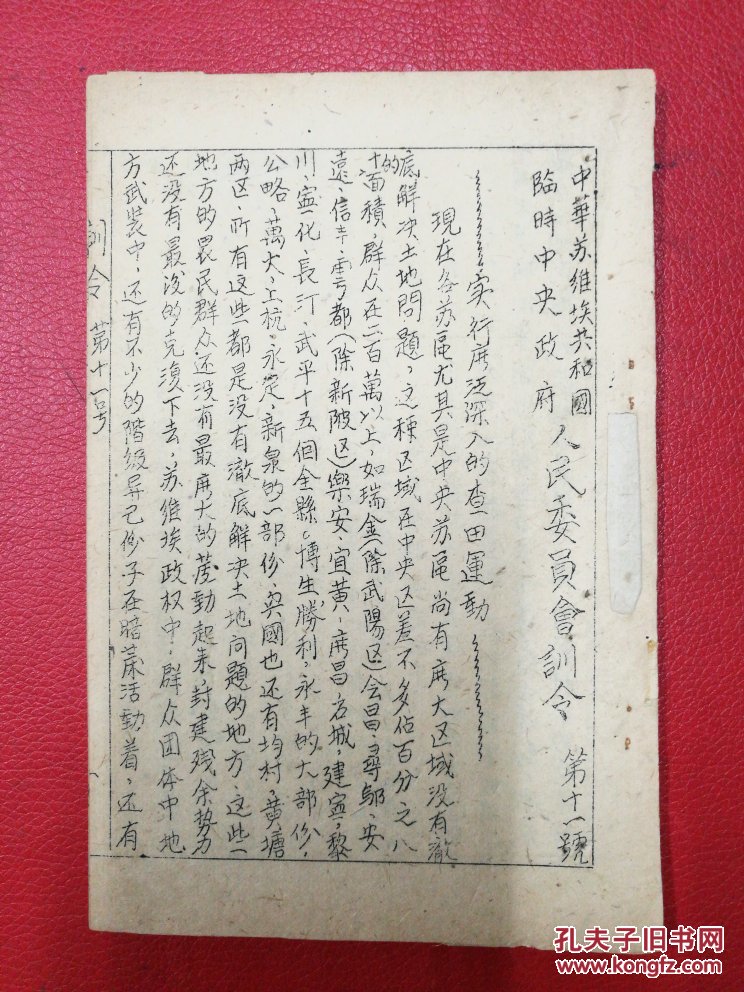 中華苏維埃共和國
臨時中央政府
人民委員會訓令 第十一號
实行广泛深入的查田運動
現在各苏區尤其是中央苏區尚有广大区域没有澈
底解决土地問題，这種区域在中央区差不多佔百分之八
十的面積，群众在二百萬以上，如瑞金（除武陽区）会昌、尋鄔、安
遠、信丰、雩都（除新陂区）樂安、宜黄、广昌、石城，建宁，黎
川、宁化、長汀、武平十五個全縣，博生勝利，永丰的大部份，
公略、萬太，上杭、永定，新泉的一部份、兴國也还有均村，黄塘
两区，所有这些都是没有澈底解决土地问題的地方、这些
地方的農民群众还没有最广大的發動起来，封建残余势力
还没有最後的克復下去，苏維埃政权中，群众团体中地
方武装中，还有不少的階级异己份子在暗藏活動着，还有
訓令 第十一号
孔夫子旧书网
www.kongfz.com